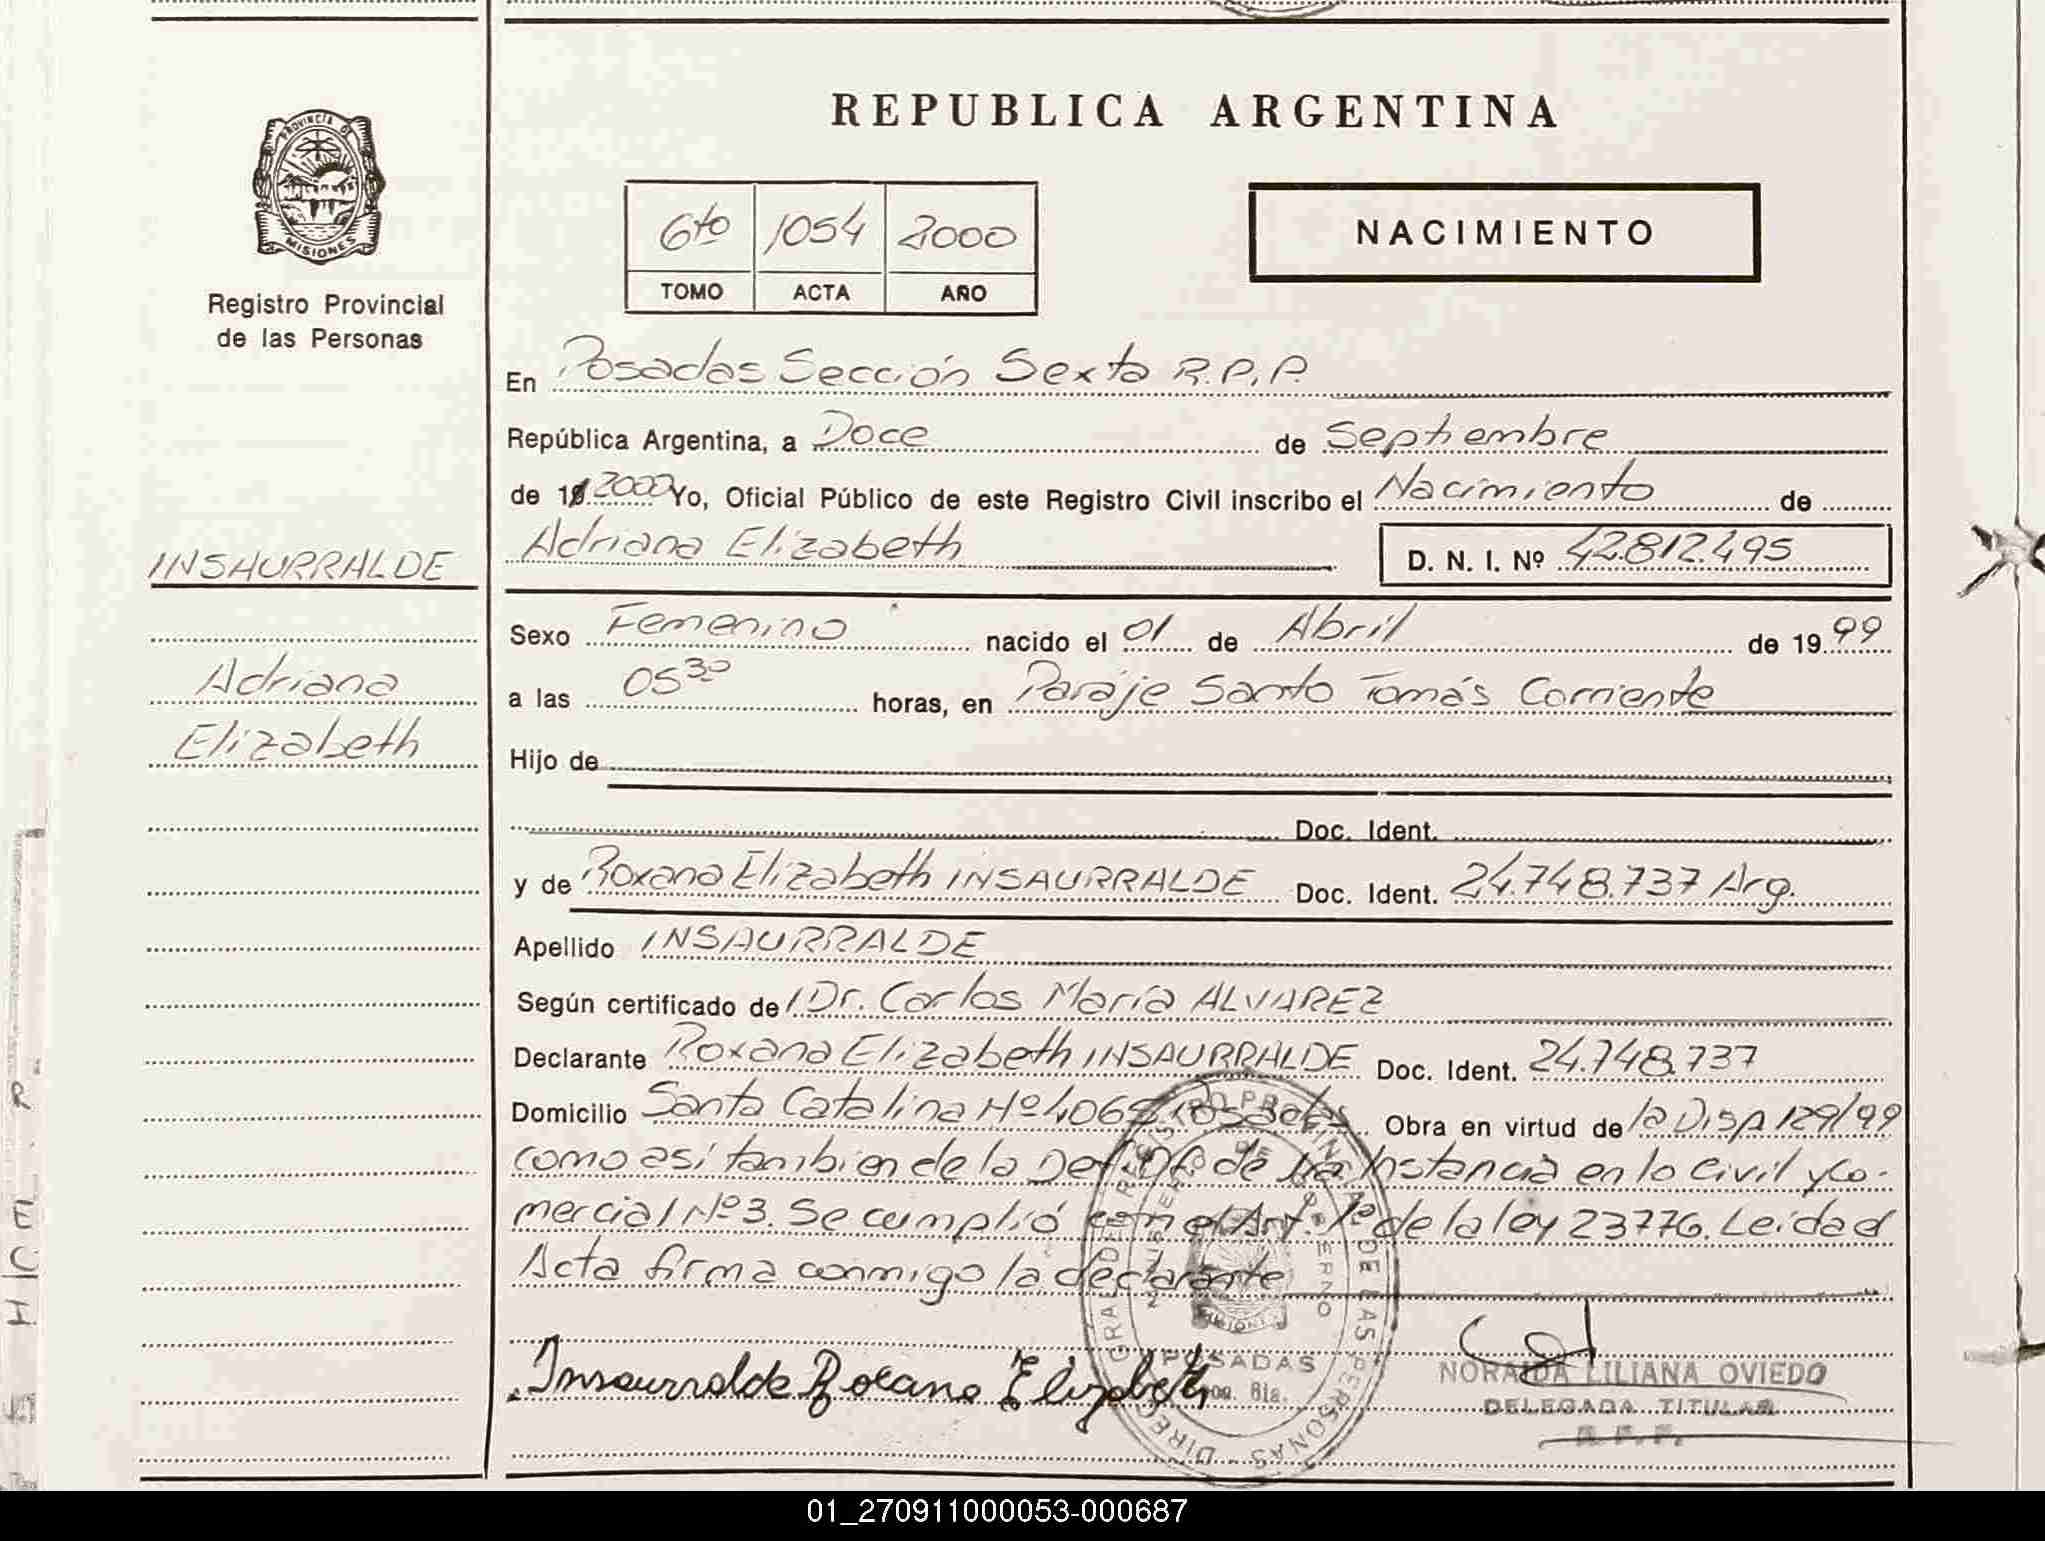 REPUBLICA ARGENTINA
PROVINCIA DE
MISIONES
Registro Provincial
de las Personas
6to 1054 2000
TOMO ACTA AÑO
NACIMIENTO
En Posadas Sección Sexta R.P.P.
República Argentina, a Doce de Septiembre
de 19 2000 Yo, Oficial Público de este Registro Civil inscribo el Nacimiento de
INSAURRALDE
Adriana
Elizabeth
Adriana Elizabeth D. N. I. Nº 42.812.495
Sexo Femenino nacido el 01 de Abril de 19 99
a las 05 30 horas, en Paraje Santo Tomás Corriente
Hijo de
Doc. Ident.
y de Roxana Elizabeth INSAURRALDE Doc. Ident. 24.748.737 Arg.
Apellido INSAURRALDE
Según certificado de Dr. Carlos María ALVAREZ
Declarante Roxana Elizabeth INSAURRALDE Doc. Ident. 24.748.737
Domicilio Santa Catalina Nº 4068 Posadas Obra en virtud de la Disp 129/99
como asi tambien de la Def. Of. de 1ra Instancia en lo Civil y Co-
mercial Nº 3. Se cumplió con el Art. 1º de la ley 23776. Leida el
Acta firma conmigo la declarante
Insaurralde Roxana Elizabeth
DIRECCION GRAL DEL REGISTRO PROVINCIAL DE LAS PERSONAS
MINISTERIO DE GOBIERNO
MISIONES
POSADAS
NORAIDA LILIANA OVIEDO
DELEGADA TITULAR
R. P. P.
01_270911000053-000687